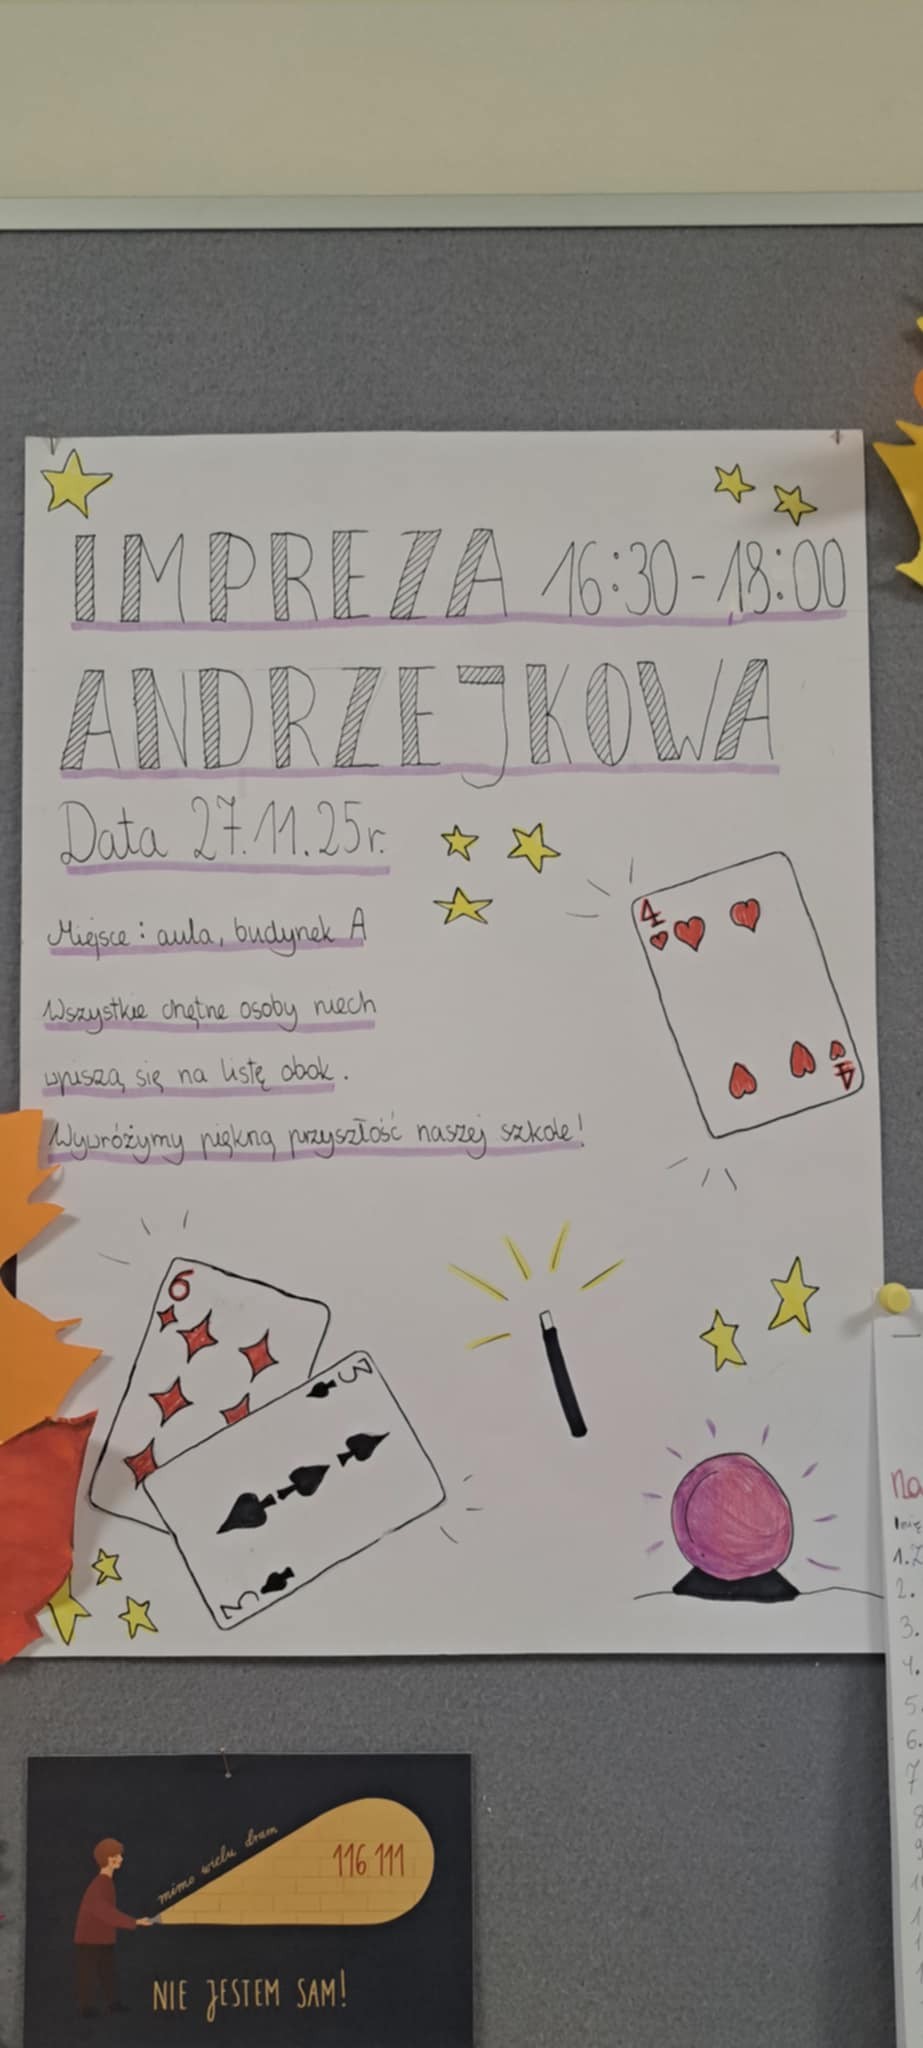 IMPREZA 16:30-18:00
ANDRZEJKOWA
Data 27.11.25r.
Miejsce: aula, budynek A
Wszystkie chętne osoby niech
wpiszą się na listę obok.
Wywróżymy piękną przyszłość naszej szkole!
4
4
6
3
3
mimo wielu dram
116 111
NIE JESTEM SAM!
1.
2.
3.
4.
5.
6.
7.
8
9